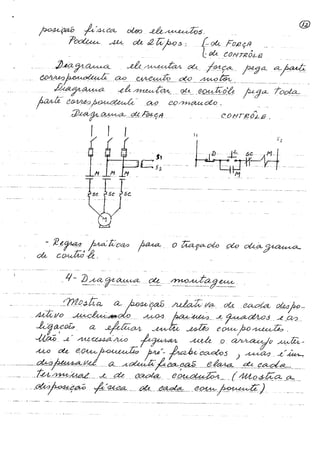 12
posição física dos elementos.
Podem ser de 2 tipos: - de FORÇA
- de CONTRÔLE
Diagrama elementar de força pega a parte
correspondente ao circuito do motor.
Diagrama elementar de contrôle pega toda
parte correspondente ao comando.
Diagrama de FORÇA CONTROLE.
S1 S2
S1
S2
D L SC M
M M M
M
SC SC SC
M
- Regras práticas para o traçado do diagrama
de contrôle.
4- Diagrama de montagem
Mostra a posição relativa de cada dispo-
sitivo incluindo nos paineis e quadros e as
ligações a efetuar entre estes componentes.
Não é necessário figurar nele o arranjo inter-
no de componentes pré-fabricados, mas é in-
dispensável a identificação clara de cada
terminal e de cada condutor (mostra a
disposição física de cada componente)